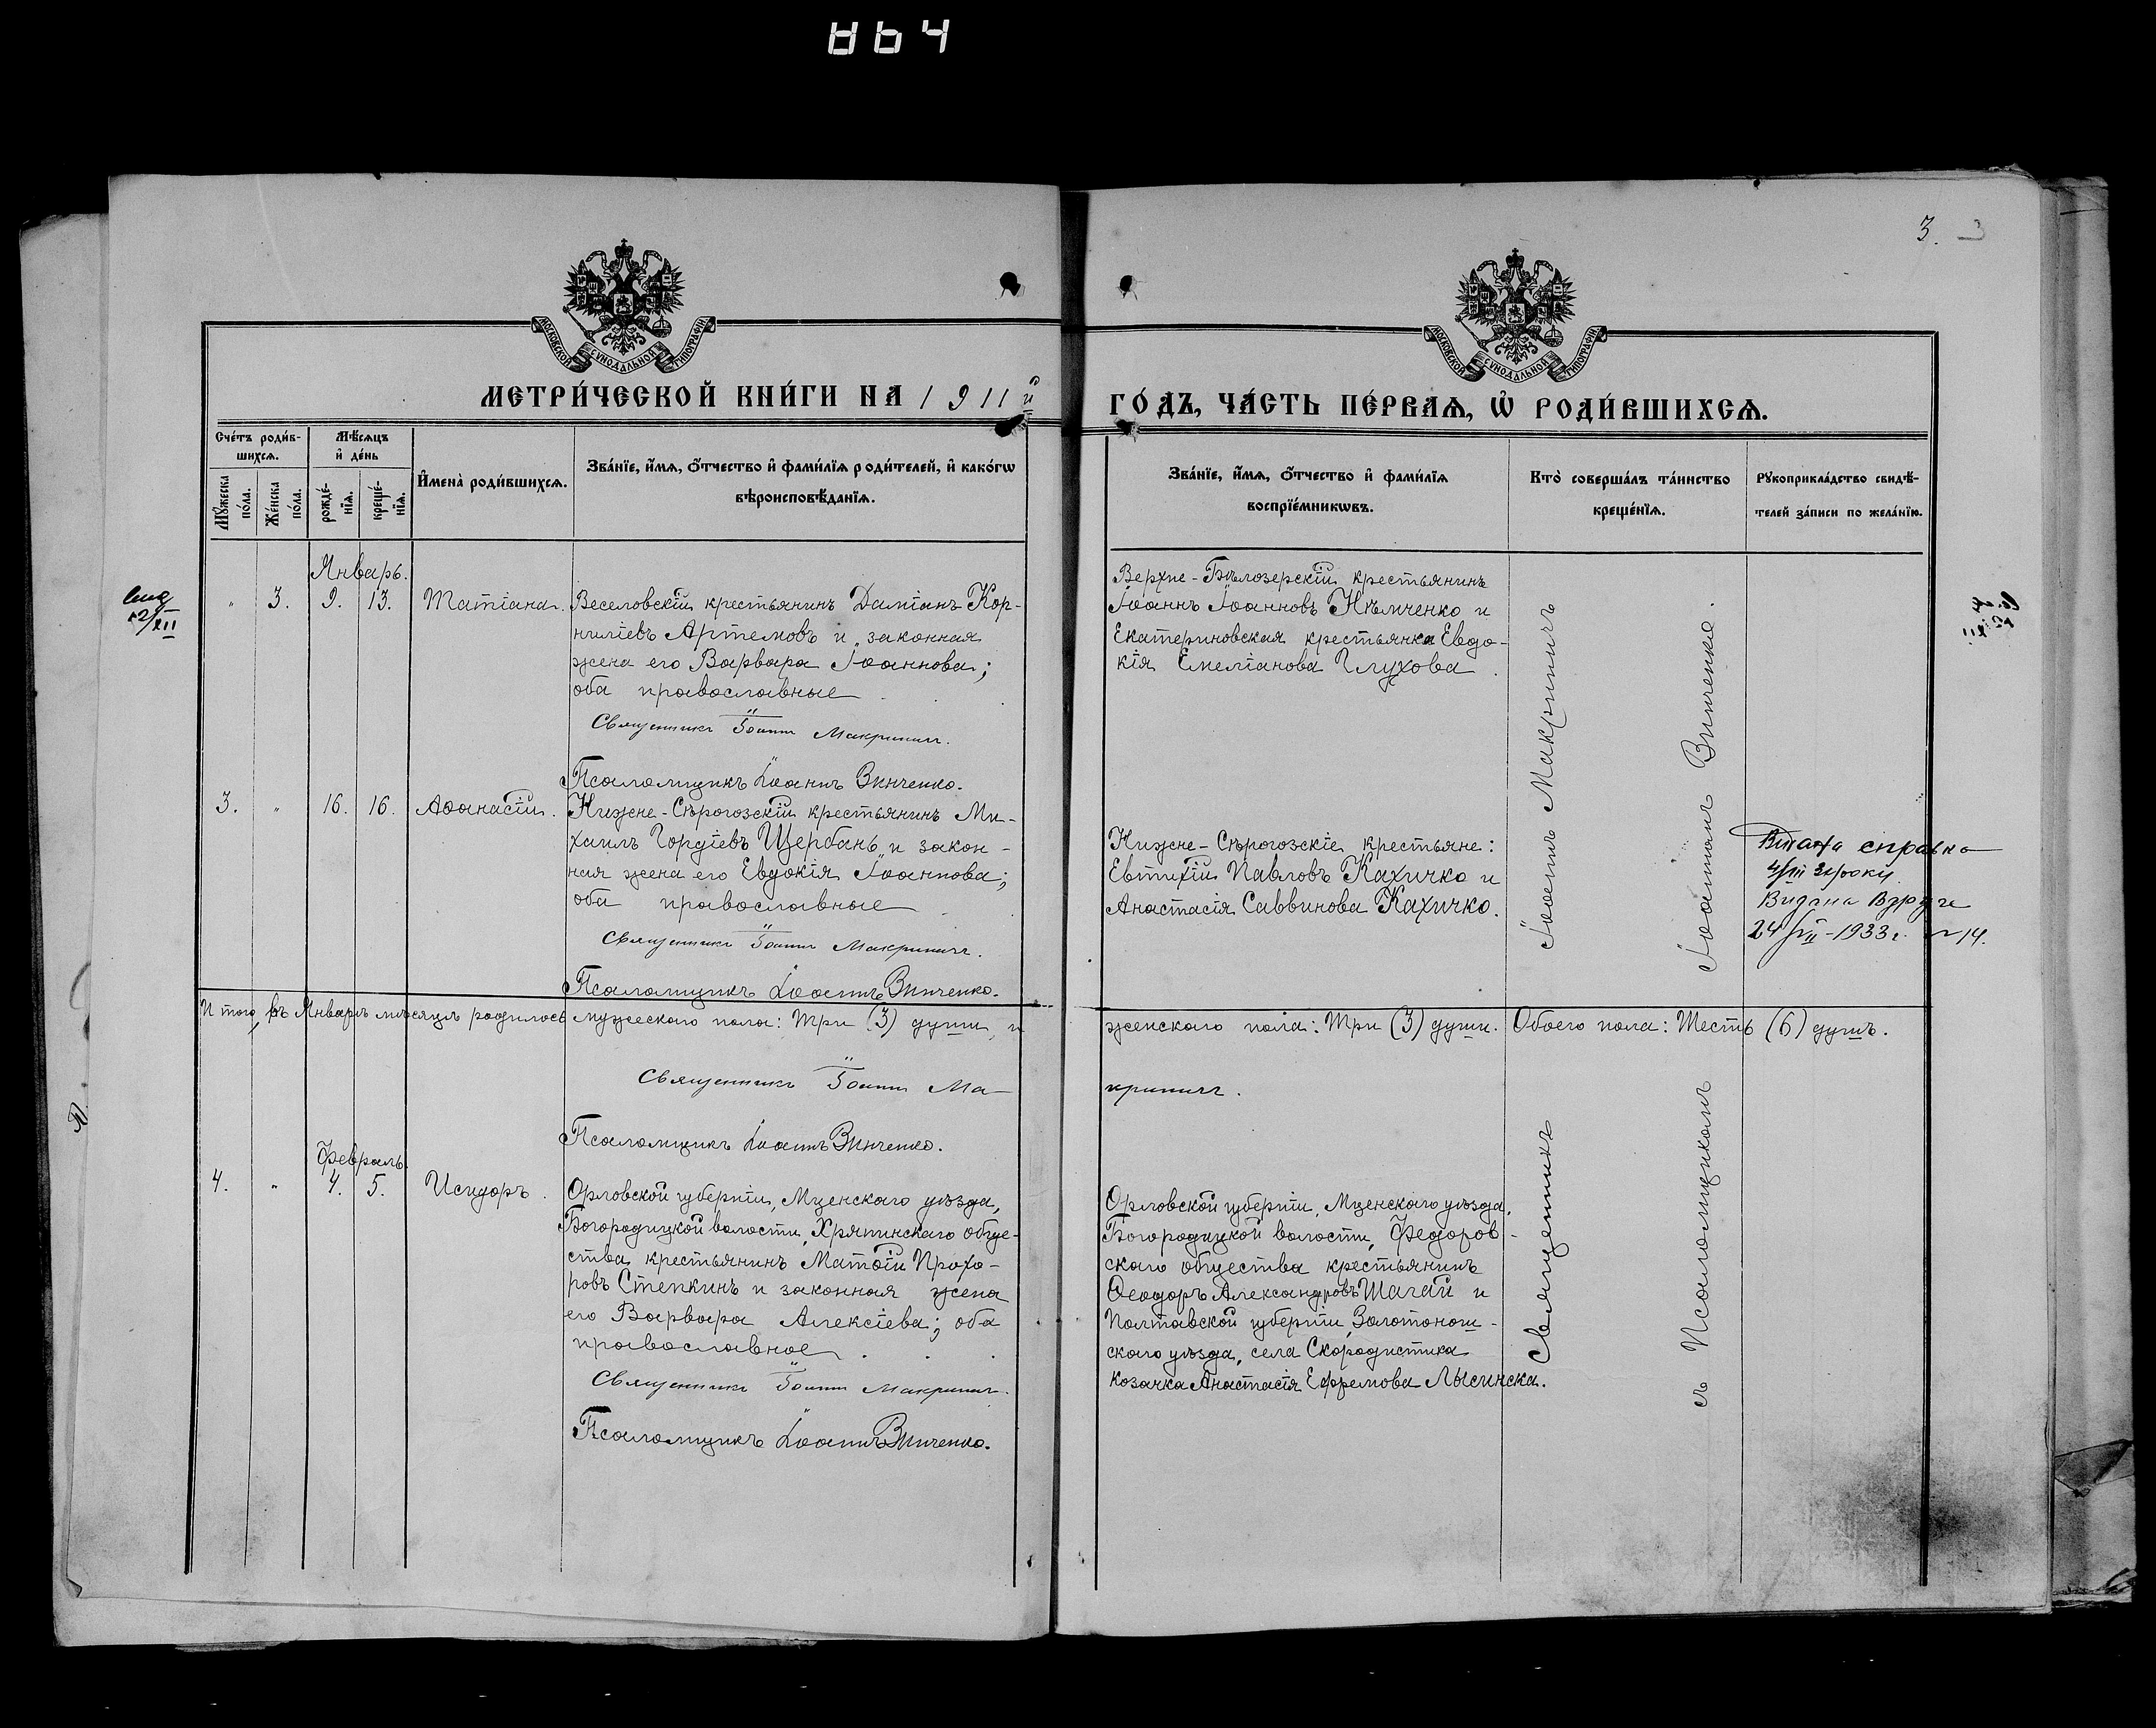 864
3. 3
МОСКОВСКОЙ СУНОДАЛЬНОЙ ТИПОГРАФІИ
МОСКОВСКОЙ СУНОДАЛЬНОЙ ТИПОГРАФІИ
МЕТРИ́ЧЕСКОЙ КНИ́ГИ НА 1911й
ГО́ДЪ, ЧА́СТЬ ПЕ́РВАѦ, Ѡ РОДИ́ВШИХСѦ.
Сче́тъ роди́в-
шихсѧ.
Мѣ́сѧцъ
и҆ де́нь
Мꙋ́жеска
по́ла.
Же́нска
по́ла.
рожде́-
нїѧ.
креще́-
нїѧ.
И҆мена̀ роди́вшихсѧ.
Зва́нїе, и҆́мѧ, ѻ҆́тчество и҆ фами́лїѧ роди́телей, и҆ како́гѡ
вѣроисповѣ́данїѧ.
Зва́нїе, и҆́мѧ, ѻ҆́тчество и҆ фами́лїѧ
воспрїе́мникѡвъ.
Кто̀ соверша́лъ та́инство
креще́нїѧ.
Рꙋкоприкла́дство свидѣ́-
телей за́писи по жела́нїю.
Январь.
" 3. 9. 13. Татіана.
Веселовскій крестьянинъ Даміанъ Кор-
ниліевъ Артемовъ и законная
жена его Варвара Іоаннова;
оба православные
Священникъ Іоаннъ Макринич.
Псаломщикъ Іоаннъ Винченко.
Верхне-Бѣлозерскій крестьянинъ
Іоаннъ Іоанновъ Нѣмченко и
Екатериновская крестьянка Евдо-
кія Емеліанова Глухова.
3. " 16. 16. Аѳанасій.
Нижне-Сѣрогозскій крестьянинъ Ми-
хаилъ Гордіевъ Щербань и закон-
ная жена его Евдокія Іоаннова;
оба православные
Священникъ Іоаннъ Макринич.
Псаломщикъ Іоаннъ Винченко.
Нижне-Сѣрогозскіе крестьяне:
Евтихій Павловъ Кахичко и
Анастасія Саввинова Кахичко.
справка
Видана Вдруге
24/VII-1933 г. №14.
Итого, въ Январѣ мѣсяцѣ родилось мужескаго пола: Три (3) души, и
женскаго пола: Три (3) души. Обоего пола: Шесть (6) душъ.
Священникъ Іоаннъ Ма-
кринич.
Псаломщикъ Іоаннъ Винченко.
Февраль.
4. " 4. 5. Исидоръ.
Орловской губерніи, Мценскаго уѣзда,
Богородицкой волости, Хряпинскаго обще-
ства крестьянинъ Матѳій Прохо-
ровъ Степкинъ и законная жена
его Варвара Алексіева; оба
православное
Священникъ Іоаннъ Макринич.
Псаломщикъ Іоаннъ Винченко.
Орловской губерніи, Мценскаго уѣзда,
Богородицкой волости, Федоров-
скаго общества крестьянинъ
Ѳеодоръ Александровъ Шагай и
Полтавской губерніи, Золотонош-
скаго уѣзда, села Скородистика
козачка Анастасія Ефремова Лысинска.
Священникъ Іоаннъ Макринич
съ Псаломщикомъ Іоанномъ Винченко.